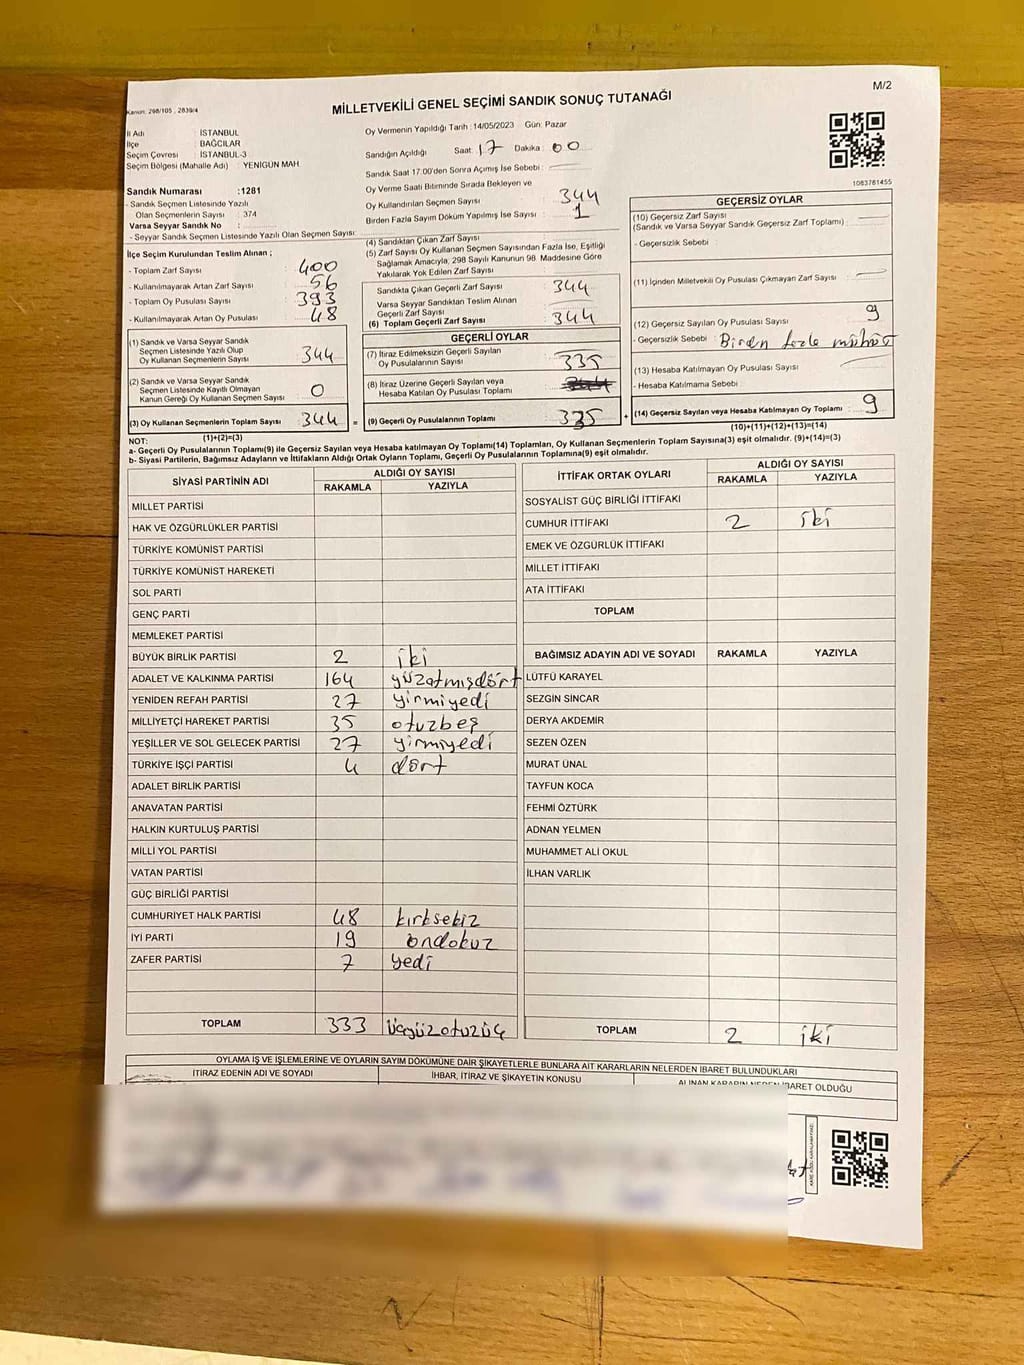 M/2
Kanun: 298/105 , 2839/4
MİLLETVEKİLİ GENEL SEÇİMİ SANDIK SONUÇ TUTANAĞI
İl Adı : İSTANBUL
İlçe : BAĞCILAR
Seçim Çevresi : İSTANBUL-3
Seçim Bölgesi (Mahalle Adı) : YENİGÜN MAH.
Sandık Numarası :1281
- Sandık Seçmen Listesinde Yazılı
Olan Seçmenlerin Sayısı : 374
Varsa Seyyar Sandık No :
- Seyyar Sandık Seçmen Listesinde Yazılı Olan Seçmen Sayısı:
İlçe Seçim Kurulundan Teslim Alınan ;
- Toplam Zarf Sayısı : 400
- Kullanılmayarak Artan Zarf Sayısı : 56
- Toplam Oy Pusulası Sayısı : 393
- Kullanılmayarak Artan Oy Pusulası : 48
(1) Sandık ve Varsa Seyyar Sandık
Seçmen Listesinde Yazılı Olup
Oy Kullanan Seçmenlerin Sayısı : 344
(2) Sandık ve Varsa Seyyar Sandık
Seçmen Listesinde Kayıtlı Olmayan
Kanun Gereği Oy Kullanan Seçmen Sayısı : 0
(3) Oy Kullanan Seçmenlerin Toplam Sayısı : 344
(1)+(2)=(3)
Oy Vermenin Yapıldığı Tarih :14/05/2023 Gün: Pazar
Sandığın Açıldığı Saat: 17 Dakika : 00
Sandık Saat 17.00'den Sonra Açımış İse Sebebi :
Oy Verme Saati Bitiminde Sırada Bekleyen ve
Oy Kullandırılan Seçmen Sayısı : 344
Birden Fazla Sayım Döküm Yapılmış İse Sayısı : 1
(4) Sandıktan Çıkan Zarf Sayısı :
(5) Zarf Sayısı Oy Kullanan Seçmen Sayısından Fazla İse, Eşitliği
Sağlamak Amacıyla, 298 Sayılı Kanunun 98. Maddesine Göre
Yakılarak Yok Edilen Zarf Sayısı :
Sandıkta Çıkan Geçerli Zarf Sayısı : 344
Varsa Seyyar Sandıktan Teslim Alınan
Geçerli Zarf Sayısı :
(6) Toplam Geçerli Zarf Sayısı : 344
GEÇERLİ OYLAR
(7) İtiraz Edilmeksizin Geçerli Sayılan
Oy Pusulalarının Sayısı : 335
(8) İtiraz Üzerine Geçerli Sayılan veya
Hesaba Katılan Oy Pusulası Toplamı :
= (9) Geçerli Oy Pusulalarının Toplamı : 335 +
1083761455
GEÇERSİZ OYLAR
(10) Geçersiz Zarf Sayısı :
(Sandık ve Varsa Seyyar Sandık Geçersiz Zarf Toplamı)
- Geçersizlik Sebebi :
(11) İçinden Milletvekili Oy Pusulası Çıkmayan Zarf Sayısı :
(12) Geçersiz Sayılan Oy Pusulası Sayısı : 9
- Geçersizlik Sebebi : Birden fazla mühür
(13) Hesaba Katılmayan Oy Pusulası Sayısı :
- Hesaba Katılmama Sebebi :
(14) Geçersiz Sayılan veya Hesaba Katılmayan Oy Toplamı : 9
(10)+(11)+(12)+(13)=(14)
NOT:
a- Geçerli Oy Pusulalarının Toplamı(9) ile Geçersiz Sayılan veya Hesaba katılmayan Oy Toplamı(14) Toplamları, Oy Kullanan Seçmenlerin Toplam Sayısına(3) eşit olmalıdır. (9)+(14)=(3)
b- Siyasi Partilerin, Bağımsız Adayların ve İttifakların Aldığı Ortak Oyların Toplamı, Geçerli Oy Pusulalarının Toplamına(9) eşit olmalıdır.
SİYASİ PARTİNİN ADI ALDIĞI OY SAYISI
RAKAMLA YAZIYLA
MİLLET PARTİSİ
HAK VE ÖZGÜRLÜKLER PARTİSİ
TÜRKİYE KOMÜNİST PARTİSİ
TÜRKİYE KOMÜNİST HAREKETİ
SOL PARTİ
GENÇ PARTİ
MEMLEKET PARTİSİ
BÜYÜK BİRLİK PARTİSİ 2 iki
ADALET VE KALKINMA PARTİSİ 164 yüzatmışdört
YENİDEN REFAH PARTİSİ 27 yirmiyedi
MİLLİYETÇİ HAREKET PARTİSİ 35 otuzbeş
YEŞİLLER VE SOL GELECEK PARTİSİ 27 yirmiyedi
TÜRKİYE İŞÇİ PARTİSİ 4 dört
ADALET BİRLİK PARTİSİ
ANAVATAN PARTİSİ
HALKIN KURTULUŞ PARTİSİ
MİLLİ YOL PARTİSİ
VATAN PARTİSİ
GÜÇ BİRLİĞİ PARTİSİ
CUMHURİYET HALK PARTİSİ 48 kırksekiz
İYİ PARTİ 19 ondokuz
ZAFER PARTİSİ 7 yedi
TOPLAM 333 üçyüzotuzüç
İTTİFAK ORTAK OYLARI ALDIĞI OY SAYISI
RAKAMLA YAZIYLA
SOSYALİST GÜÇ BİRLİĞİ İTTİFAKI
CUMHUR İTTİFAKI 2 iki
EMEK VE ÖZGÜRLÜK İTTİFAKI
MİLLET İTTİFAKI
ATA İTTİFAKI
TOPLAM
BAĞIMSIZ ADAYIN ADI VE SOYADI RAKAMLA YAZIYLA
LÜTFÜ KARAYEL
SEZGİN SİNCAR
DERYA AKDEMİR
SEZEN ÖZEN
MURAT ÜNAL
TAYFUN KOCA
FEHMİ ÖZTÜRK
ADNAN YELMEN
MUHAMMET ALİ OKUL
İLHAN VARLIK
TOPLAM 2 iki
OYLAMA İŞ VE İŞLEMLERİNE VE OYLARIN SAYIM DÖKÜMÜNE DAİR ŞİKAYETLERLE BUNLARA AİT KARARLARIN NELERDEN İBARET BULUNDUKLARI
İTİRAZ EDENİN ADI VE SOYADI İHBAR, İTİRAZ VE ŞİKAYETİN KONUSU ALINAN KARARIN NEDEN İBARET OLDUĞU